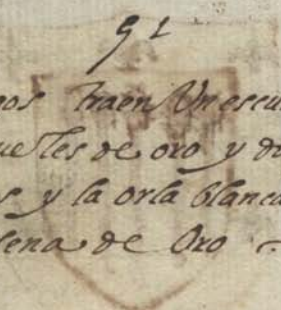 51
pos traen Un escu
ueles de oro y de
s y la orla blanca
lena de Oro